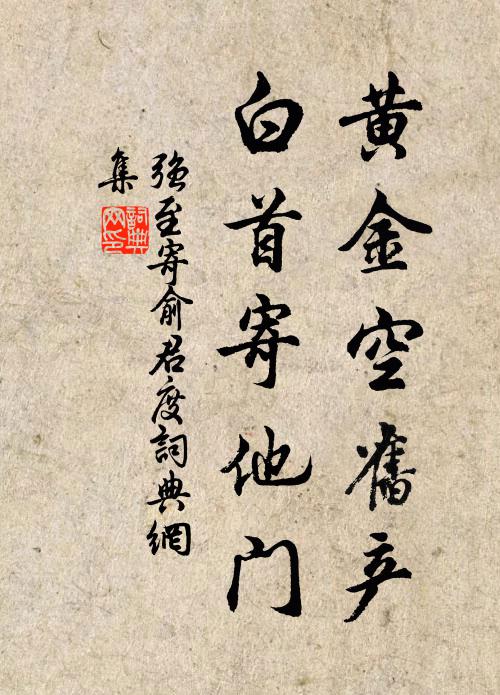 黄金空舊产
白首寄他门
强至寄俞君度詞典網
集
詞典网印